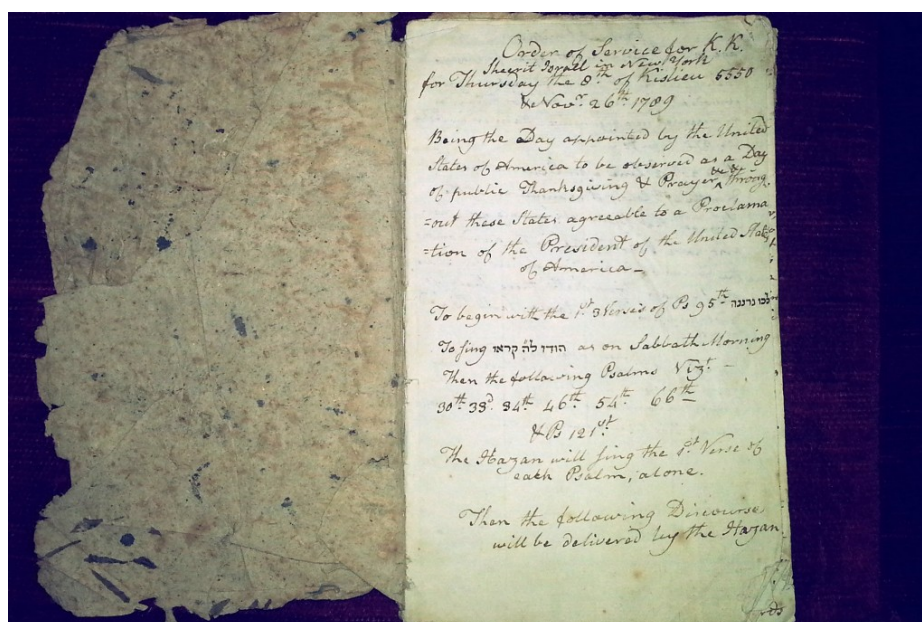 Order of Service for K. K.
Sheerit Israel in New York
for Thursday the 8th of Kislev 5550
& Novr. 26th 1789
Being the Day appointed by the United
States of America to be observed as a Day
of public Thanksgiving & Prayer &c &c throug
=out these States agreeable to a Proclama
=tion of the President of the United States
of America—
To begin with the 1st 3 Verses of Ps 95th לכו נרננה
To sing הודו לה קראו as on Sabbath Morning
Then the following Psalms Vizt. —
30th 33d. 34th 46th 54th 66th
& Ps 121st
The Hazan will sing the 1st Verse of
each Psalm, alone.
Then the following Discourse
will be delivered by the Hazan